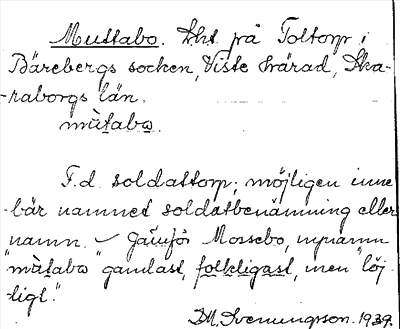 Muttabo. Lht. på Toltorp i
Bärebergs socken, Viste härad, Ska-
raborgs län.
mùtabω.
F.d. soldattorp; möjligen inne
bär namnet soldatbenämning eller
namn. Jämför Mossebo,
"mùtabω" gamlast, folkligast, men "löj-
ligt".
D. M. Svenungsson. 1939.